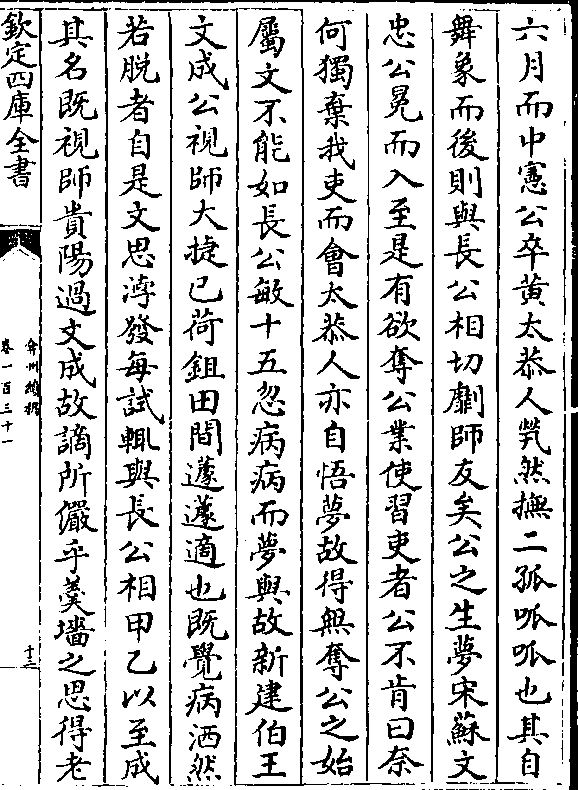 六月而中憲公卒黄太恭人煢然撫二孤呱呱也其自
舞象而後則與長公相切劘師友矣公之生夢宋蘇文
忠公冕而入至是有欲奪公業使習吏者公不肯曰奈
何獨棄我吏而會太恭人亦自悟夢故得無奪公之始
屬文不能如長公敏十五忽病病而夢與故新建伯王
文成公視師大捷已荷鉏田間蘧蘧適也既覺病洒然
若脱者自是文思浡發每試輒與長公相甲乙以至成
其名既視師貴陽過文成故謫所儼乎羹墻之思得老
欽定四庫全書
弇州續稿
卷一百三十一
十三